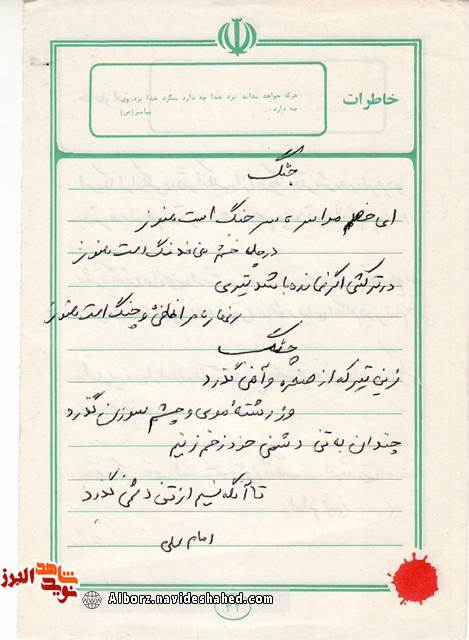 خاطرات
هرکه خواهد بداند نزد خدا چه دارد بنگرد خدا نزد وی
چه دارد..
پیامبر(ص)
جنگ
ای خصم مرا سر جنگ است هنوز
در چشم خشم است هنوز
در ترکش اگر نمانده باشد تیری
مرا و چنگ است هنوز
جنگ
زین تیر که از صخره و آهن گذرد
وز رشتهٔ موی و چشم سوزن گذرد
چندان به تن دشمن خود زخم زنیم
تا آنکه نسیم از تن دشمن گذرد
امام علی
نوید شاهد البرز
Alborz.navideshahed.com